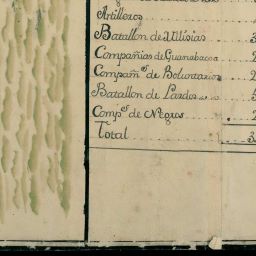 Artilleros
Batallon de Milisias 3
Compañias de Guanabacoa 2
Compam.s de Boluntarios 2
Batallon de Pardos 5
Comps.s de Negros 2
Total 3